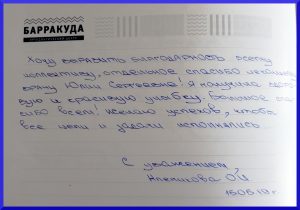 БАРРАКУДА
Хочу выразить благодарность всему
коллективу, отдельное спасибо лечащему
врачу Юлии Сергеевне! Я получила здоро-
вую и красивую улыбку. Большое спа-
сибо всем! Желаю успехов, чтобы
все цели и задачи исполнялись
С уважением,
О.И.
15.05.19г.